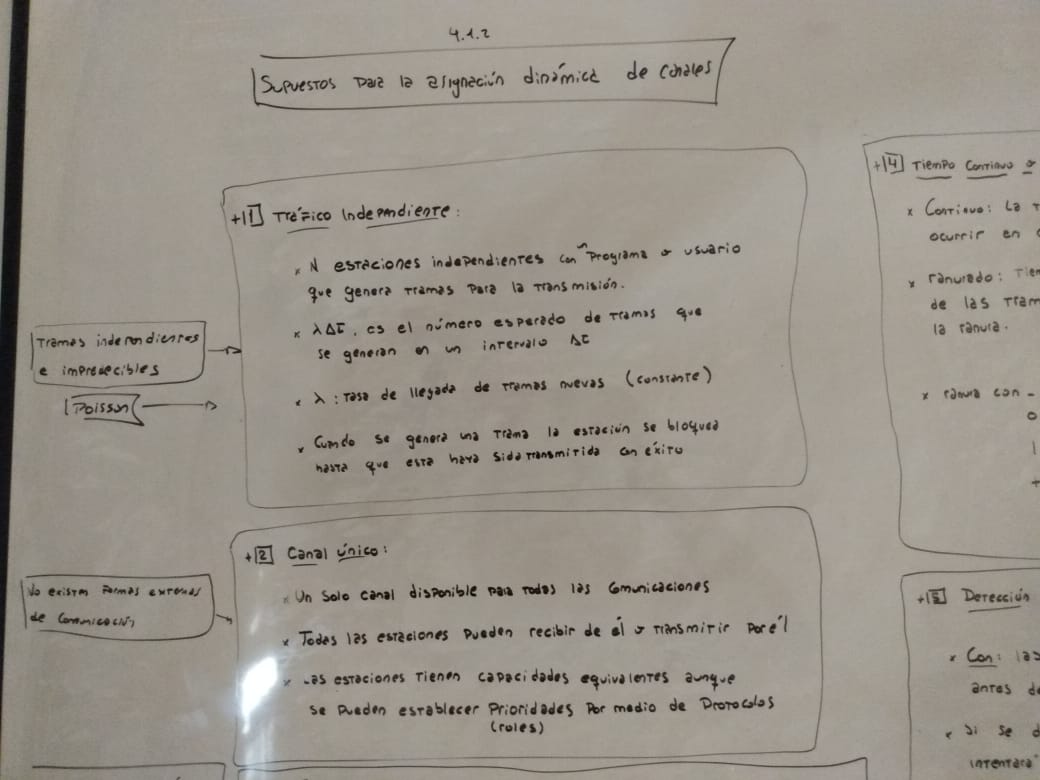 4.1.2
Supuestos para la asignación dinámica de canales
+[1] Tráfico Independiente:
x N estaciones independientes con un programa o usuario
que genera tramas para la transmisión.
x λΔt, es el número esperado de tramas que
se generan en un intervalo Δt
x λ: tasa de llegada de tramas nuevas (constante)
x Cuando se genera una trama la estación se bloquea
hasta que esta haya sido transmitida con éxito
Tramas independientes
e impredecibles
Poisson
+[2] Canal único:
x Un solo canal disponible para todas las comunicaciones
x Todas las estaciones pueden recibir de él o transmitir por él
x Las estaciones tienen capacidades equivalentes aunque
se pueden establecer prioridades por medio de protocolos
(roles)
No existen formas externas
de comunicación
+[4] Tiempo Continuo o
x Continuo: La
ocurrir en
x ranurado:
de las
la ranura.
x ranura con
+[5] Detección
x Con: las
antes
x Si se
intentara